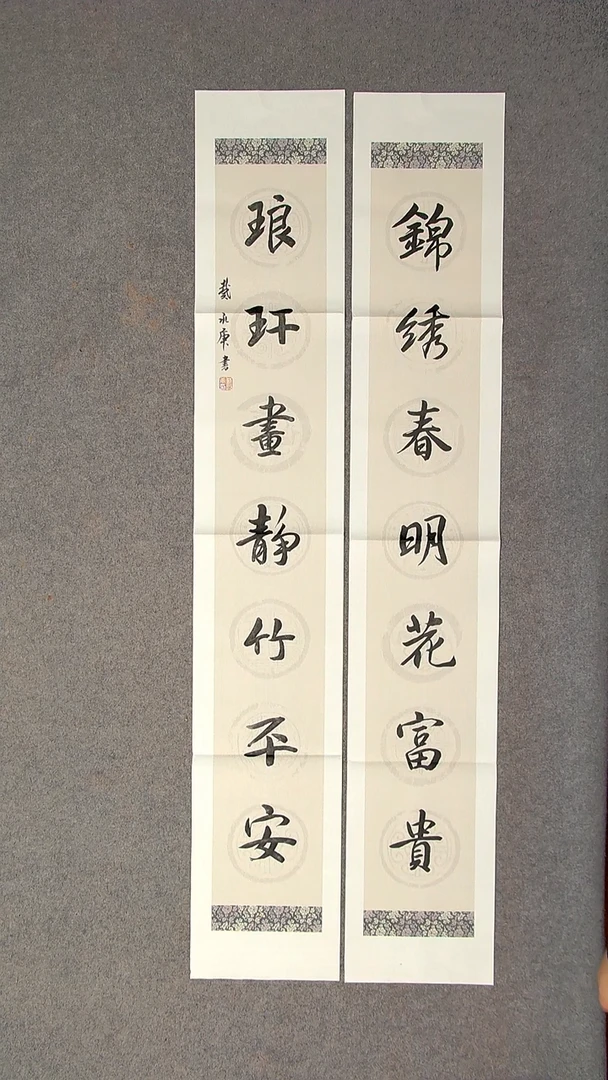 錦绣春明花富貴
琅玕畫静竹平安
戴永康書